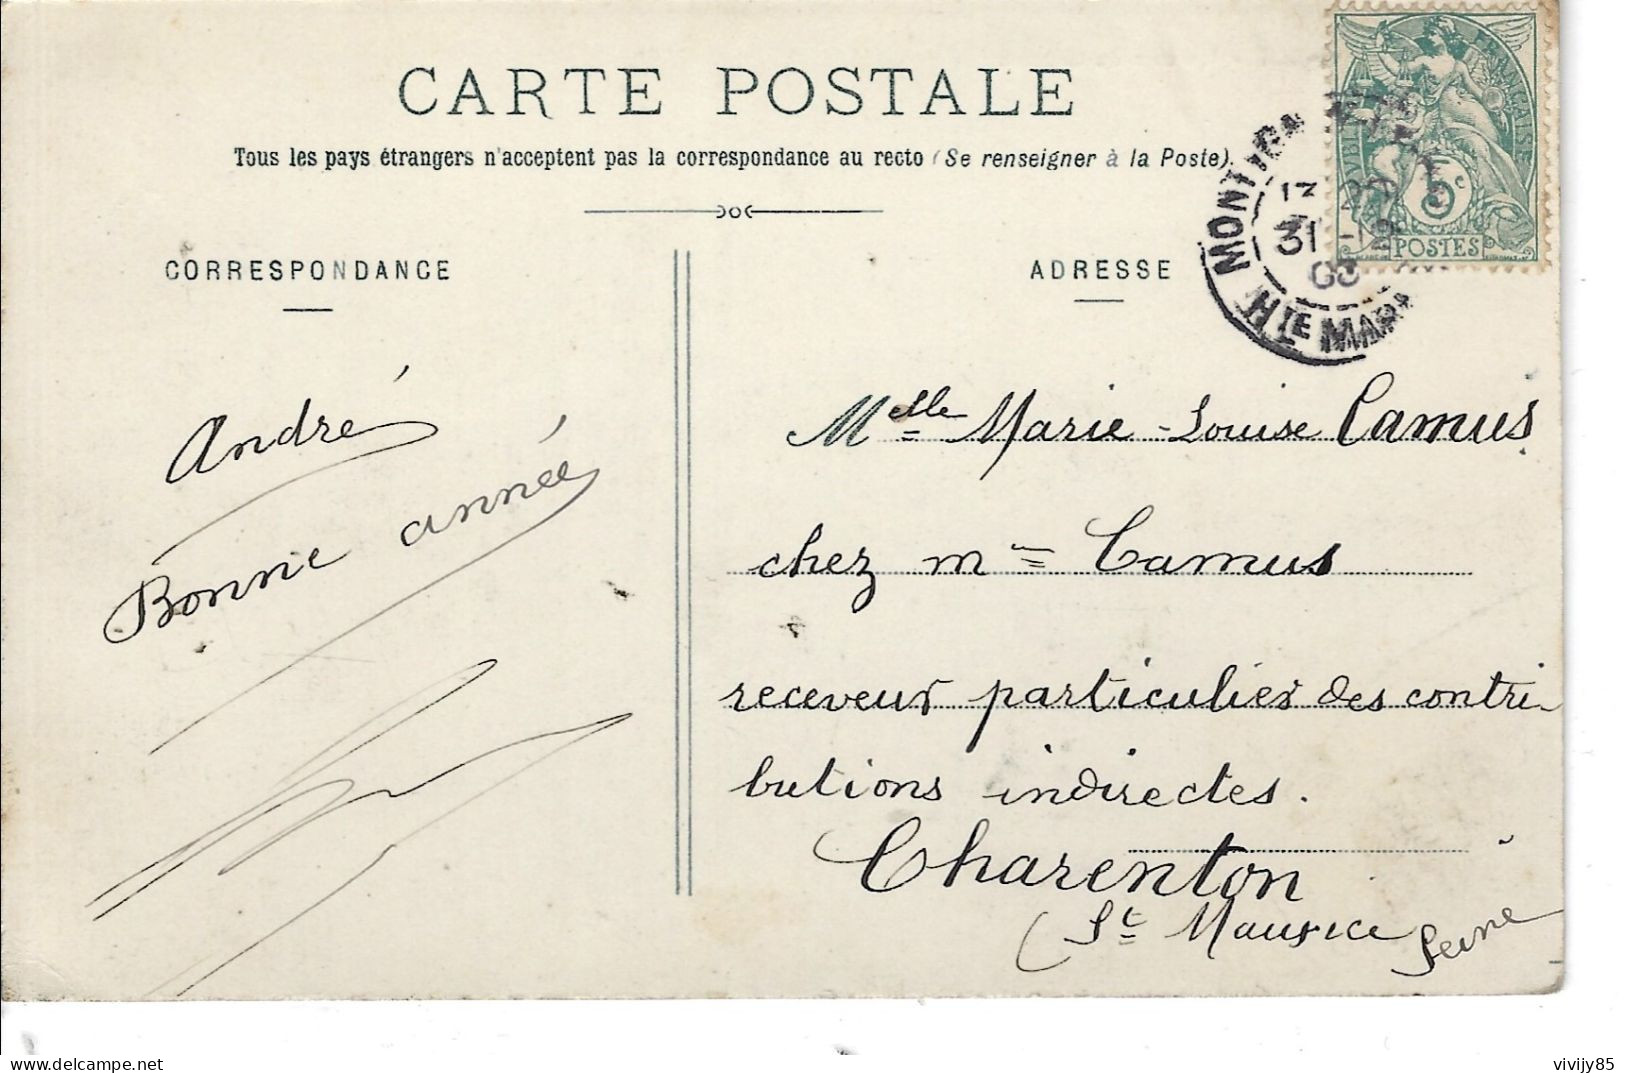 CARTE POSTALE
Tous les pays étrangers n'acceptent pas la correspondance au recto (Se renseigner à la Poste).
CORRESPONDANCE
André
Bonne année
ADRESSE
FRANÇAISE
5c
POSTES
MONTIGN
31
03
HTE MAR
Melle Marie-Louise Camus
chez Me Camus
receveur particulier des contri-
butions indirectes.
Charenton
(St Maurice Seine
vivijy85